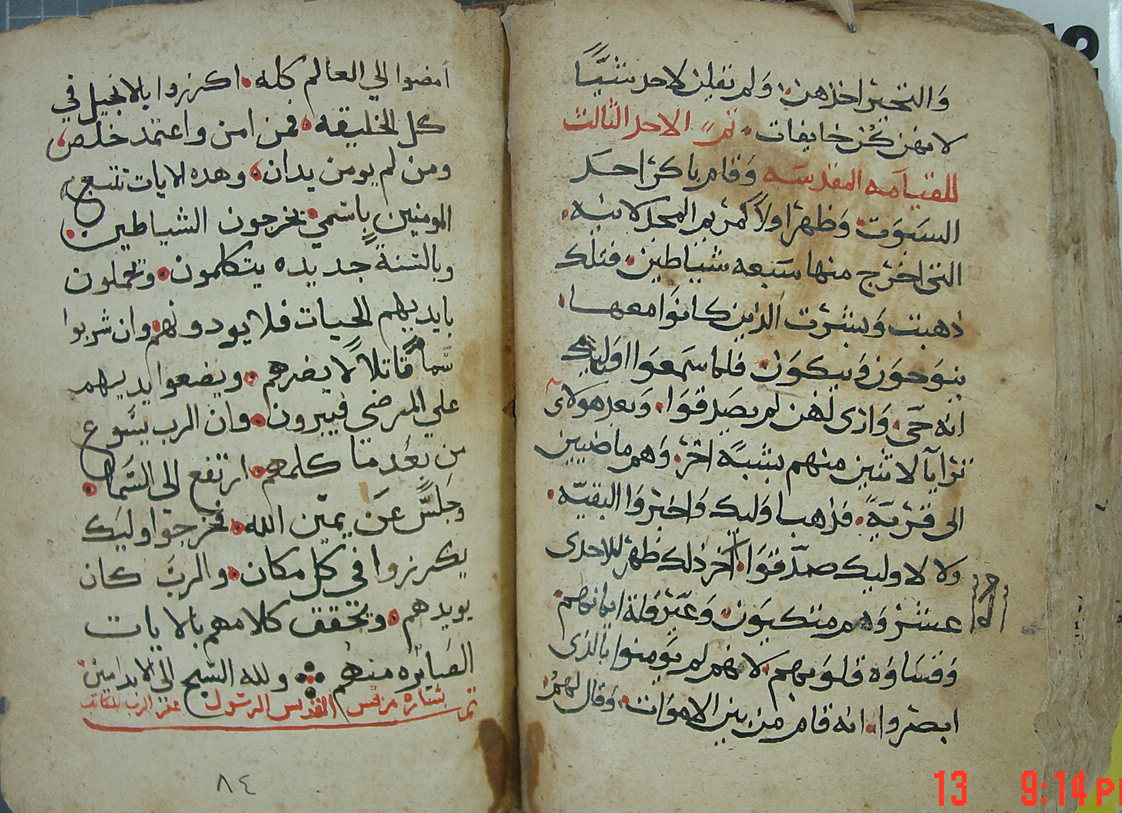 والتحير اخذهن. ولم تقلن لاحد شيّا
لانهن كن خايفات تم الاحد الثالث
للقيامه المقدسه وقام باكر احد
السبوت. وظهر اولا لمريم المجدلانيه.
التي اخرج منها سبعه شياطين. فتلك
ذهبت وبشرت الذين كانوا معها.
ينوحون ويبكون. فلما سمعوا اوليك
انه حي. واذى لهن لم يصدقوا. وبعد هولاي
تزايا لاثنين منهم بشبه اخر. وهم ماضيين
الى قرية. فذهب اوليك واخبروا البقيه.
ولا لاوليك صدقوا. آخر ذلك ظهر للاحدى
عشر وهم متكيون. وعير قلة ايمانهم.
وقساوه قلوبهم. لانهم لم يومنوا بالذي
ابصروا. انه قام من بين الاموات. وقال لهم.
امضوا الي العالم كله. اكرزوا بالانجيل في
كل الخليقه. فمن امن واعتمد خلص
ومن لم يومن يدان. وهده الايات تتبع
المومنين باسمي. يخرجون الشياطين.
وبالسنة جديده يتكلمون. وتحملون
بايديهم الحيات فلا يودونهم. وان شربوا
سما قاتلا لا يضرهم. ويضعوا يديهم
علي المرضي فيبرون. وان الرب يسوع
من بعد ما كلمهم. ارتفع الي السما.
وجلس عن يمين الله. فخرجوا اوليك
يكرزوا في كل مكان. والرب كان
يويدهم. وتحقق كلامهم بالايات
الصايره منهم ولله السبح الي الابد امين
تم بشاره مرقس القديس الرسول
٨٤
13 9:14